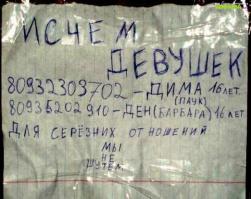 ИСЧЕМ
ДЕВУШЕК
80932309702-ДИМА 16 лет.
(ПАУК)
80935202910-ДЕН(БАРБАРА) 16 лет
ДЛЯ СЕРЁЗНИХ ОТНОШЕНИЙ
МЫ
НЕ
ШУТЕМ